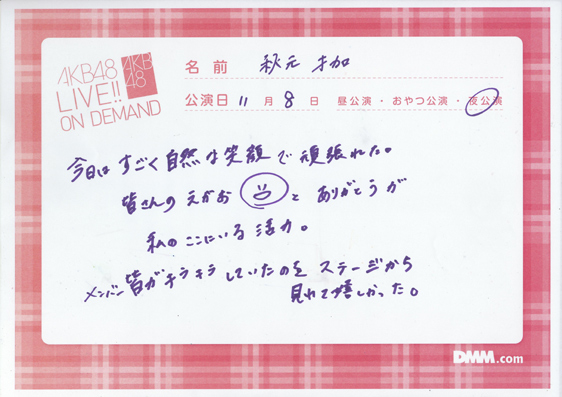 AKB48
LIVE!!
ON DEMAND
AKB
48
名前 秋元 才加
公演日 11月8日 昼公演・おやつ公演・夜公演
今日はすごく自然な笑顔で頑張れた。
皆さんのえがおと ありがとうが
私のここにいる活力。
メンバー皆がキラキラしていたのを ステージから
見れて嬉しかった。
DMM.com